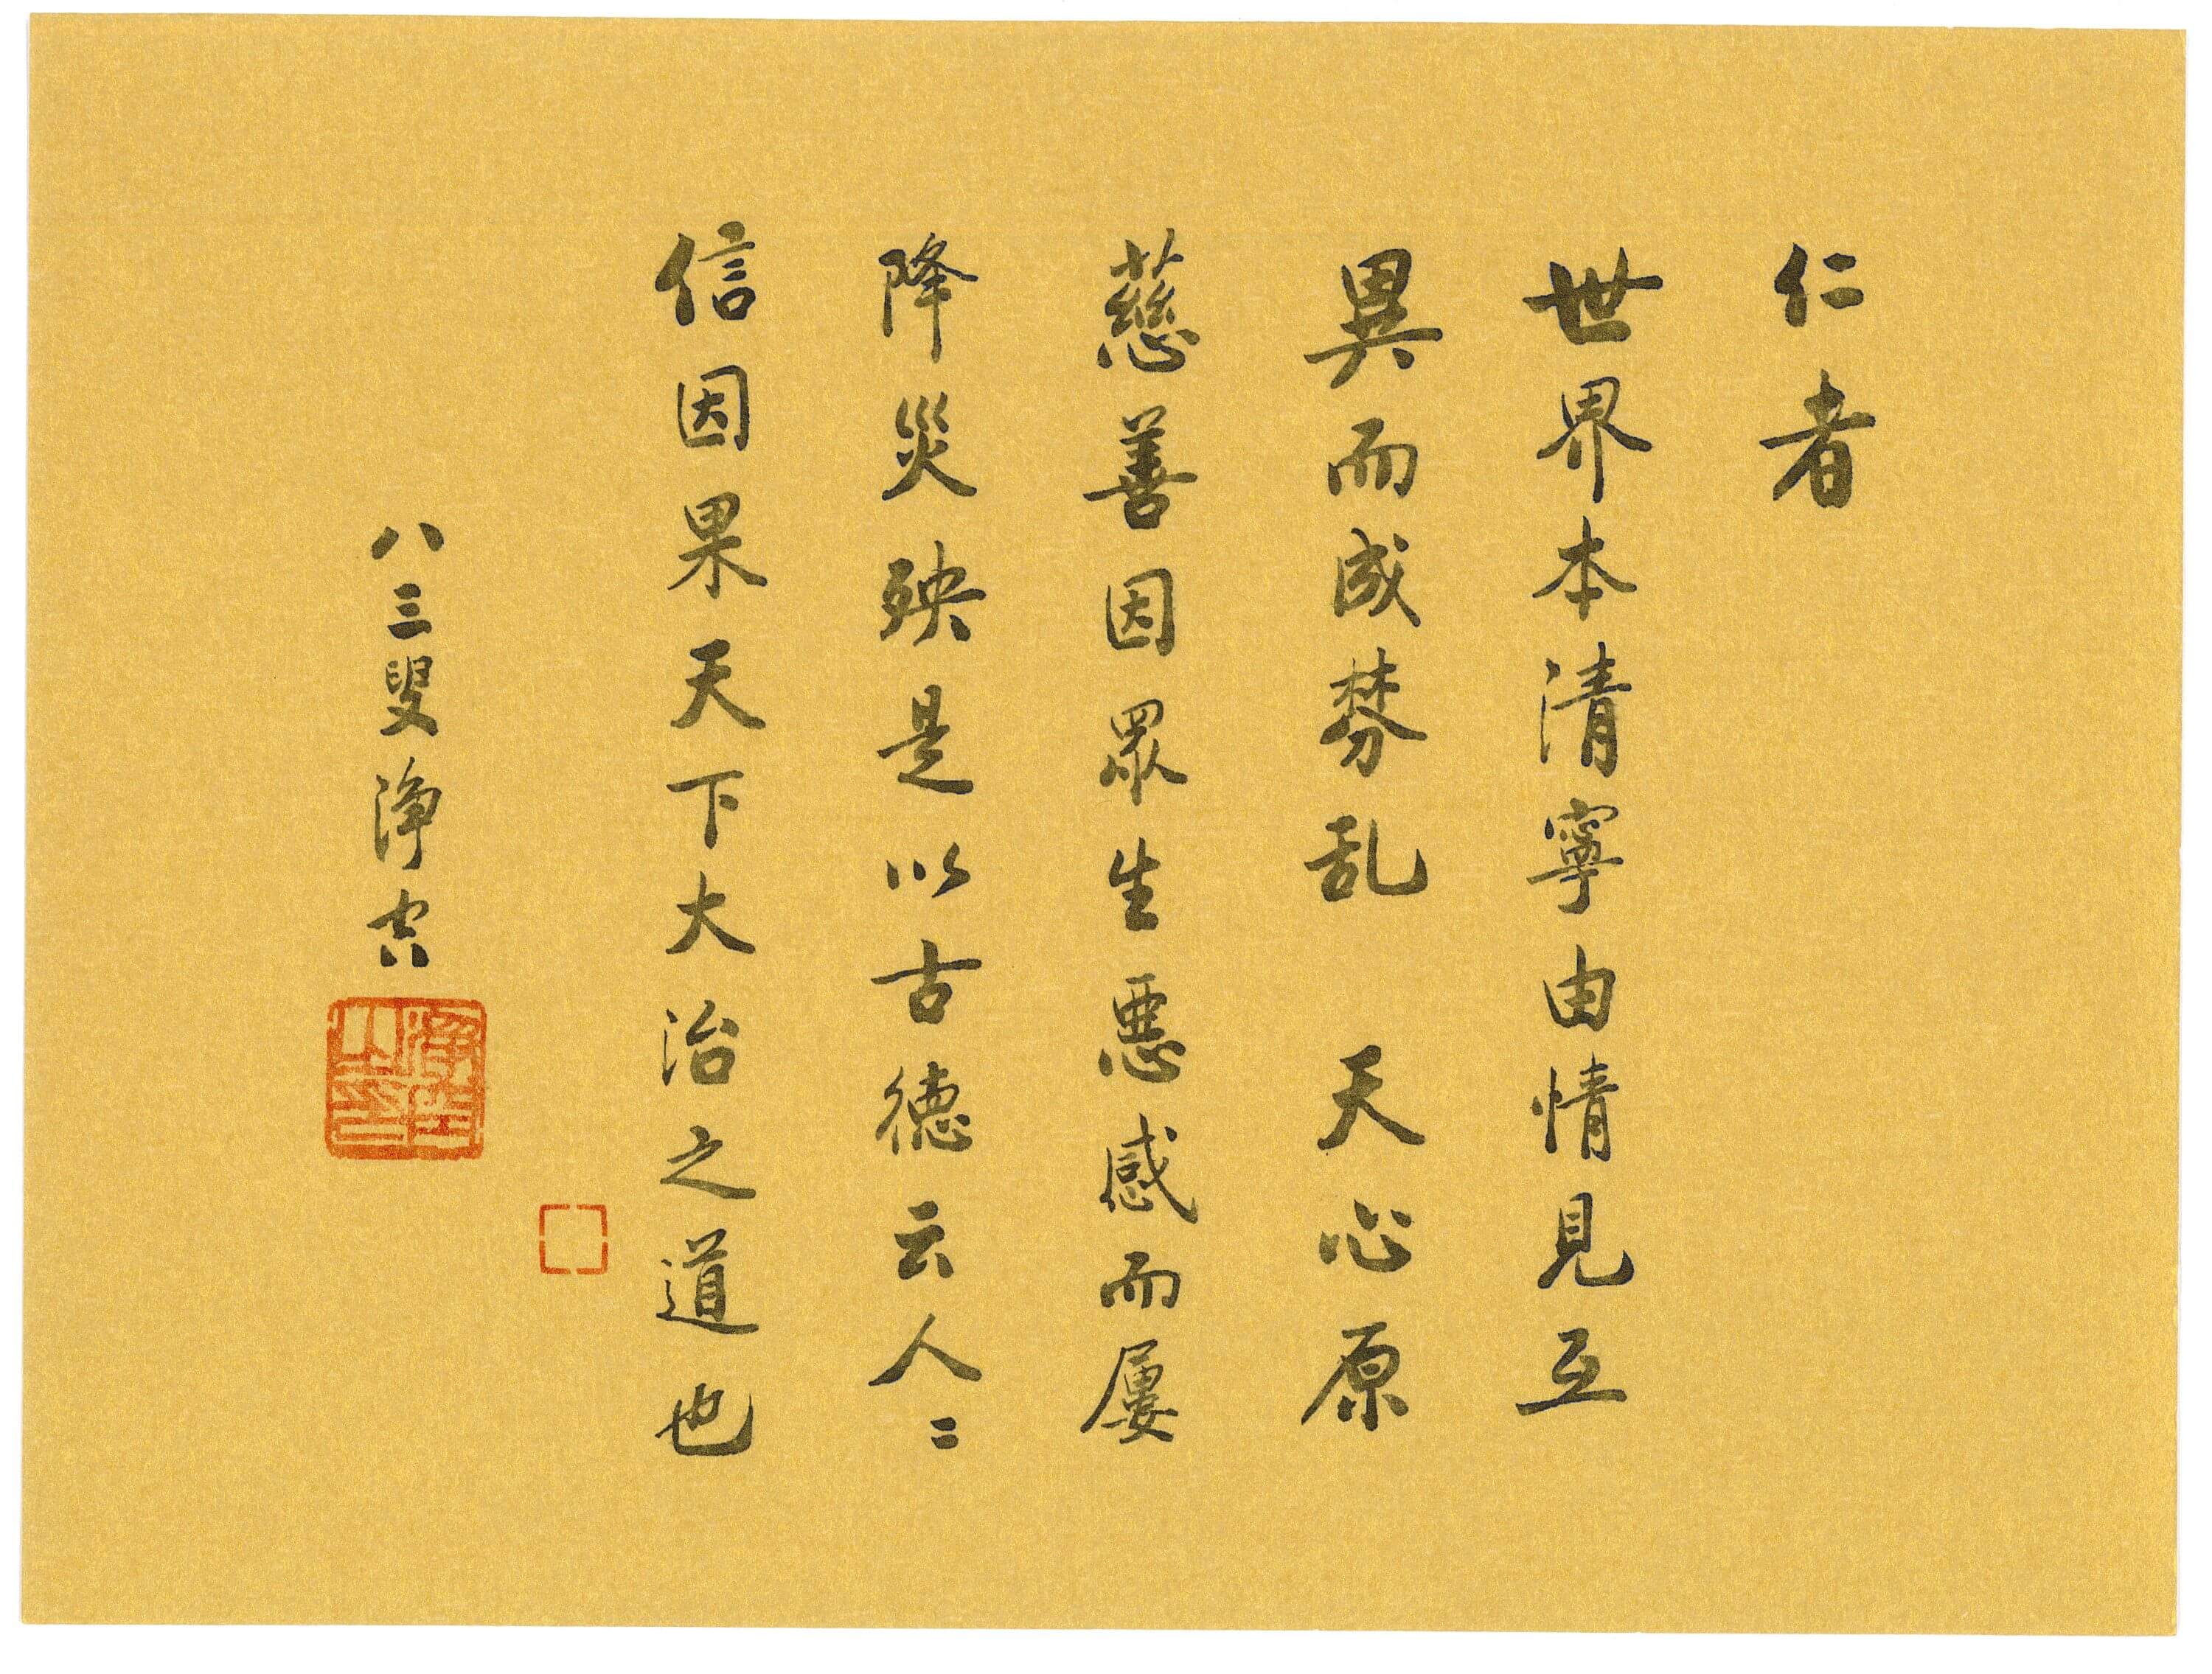 仁者
世界本清寧由情見互
異而成棼乱　天心原
慈善因眾生惡感而屢
降災殃是以古德云人〻
信因果天下大治之道也
八三叟淨空
淨空之印